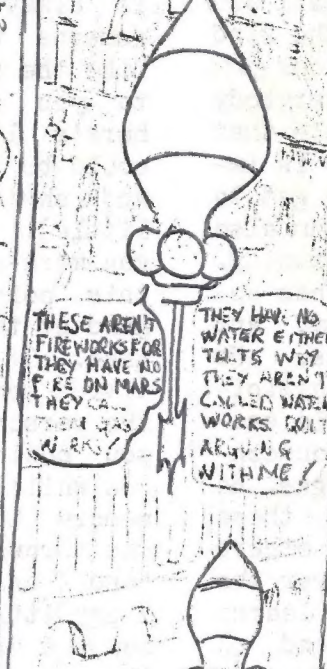 THESE AREN'T
FIREWORKS FOR
THEY HAVE NO
FIRE ON MARS
THEY CA
GAS
W RKS!
THEY HAVE NO
WATER EITHE
THATS WHY
THEY AREN'T
CALLED WATER
WORKS QUIT
ARGUING
WITH ME!